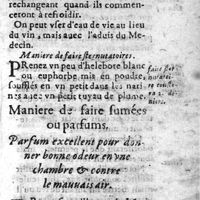 rechangeant quand ils commen-
ceront à refroidir.
On peut vser d'eau de vie au lieu
du vin, mais auec l'aduis du Me-
decin.
Maniere de faire sternutatoires.
PRenez vn peu d'helebote blanc
ou euphorbe mis en poudre,
soufflés en vn petit dans les nari-
nes a vn petit tuyau de plume.
faire
Maniere de faire fumées
ou parfums.
Parfum excellent pour don-
ner bonne odeur en vne
chambre & contre
le mauuais air.